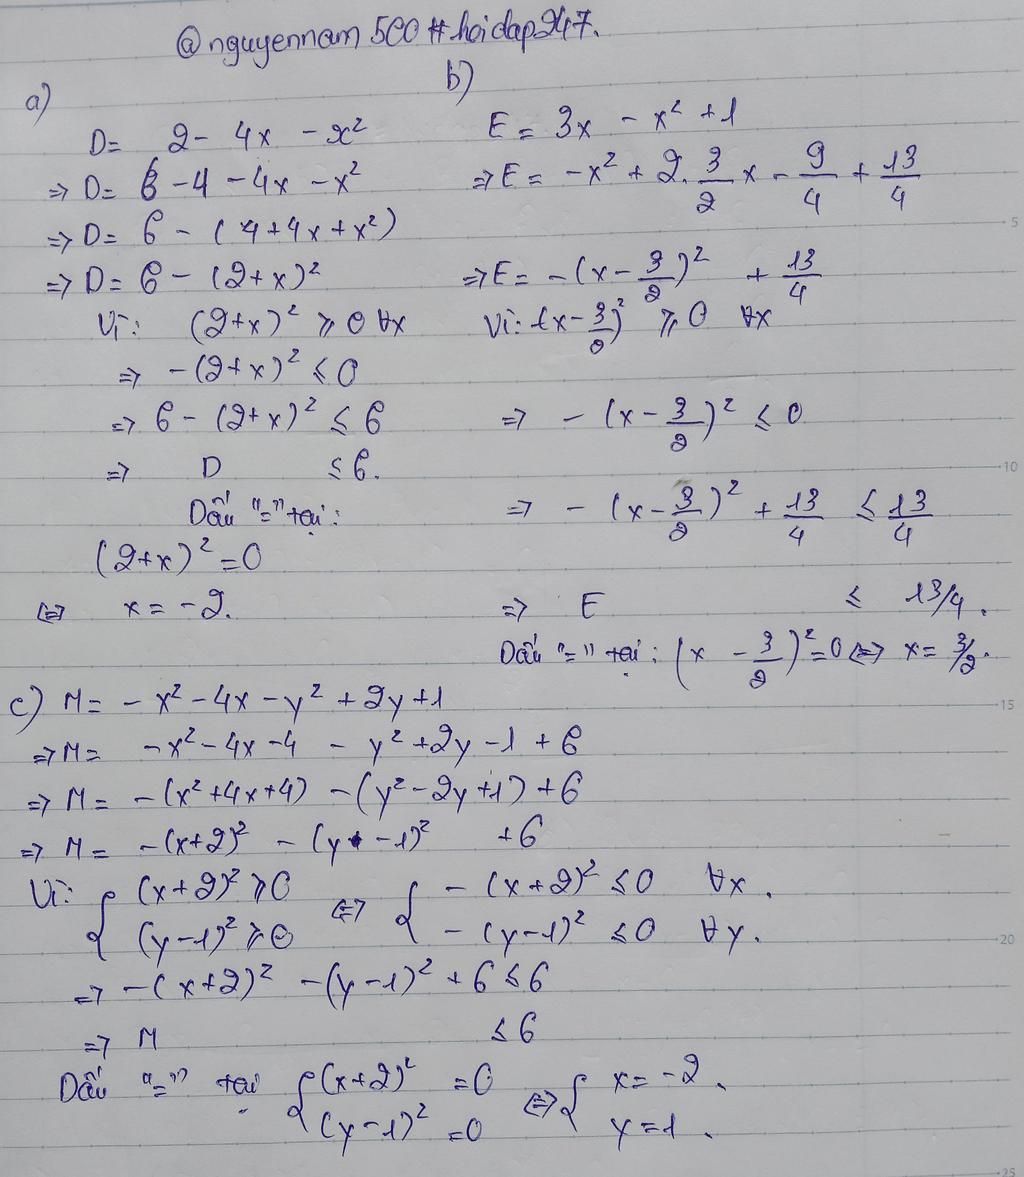 @nguyennam500#hoidap247.
a)
D= 2 - 4x - x²
=> D= 6 - 4 - 4x - x²
=> D= 6 - (4+4x+x²)
=> D= 6 - (2+x)²
Vì: (2+x)² ⩾ 0 ∀x
=> -(2+x)² ⩽ 0
=> 6 - (2+x)² ⩽ 6
=> D ⩽ 6.
Dấu "=" tại:
(2+x)² = 0
<=> x = -2.
b)
E = 3x - x² + 1
=> E = -x² + 2. 3/2 x - 9/4 + 13/4
=> E = -(x - 3/2)² + 13/4
Vì: (x - 3/2)² ⩾ 0 ∀x
=> - (x - 3/2)² ⩽ 0
=> - (x - 3/2)² + 13/4 ⩽ 13/4
=> E ⩽ 13/4.
Dấu "=" tại: (x - 3/2)² = 0 <=> x = 3/2.
c) M = - x² - 4x - y² + 2y + 1
=> M = -x² - 4x - 4 - y² + 2y - 1 + 6
=> M = -(x² + 4x + 4) - (y² - 2y + 1) + 6
=> M = -(x+2)² - (y - 1)² + 6
Vì: { (x+2)² ⩾ 0 <=> { - (x+2)² ⩽ 0 ∀x.
(y-1)² ⩾ 0 - (y-1)² ⩽ 0 ∀y.
=> -(x+2)² - (y-1)² + 6 ⩽ 6
=> M ⩽ 6
Dấu "=" tại { (x+2)² = 0 <=> { x = -2.
(y-1)² = 0 y = 1.
5
10
15
20
25